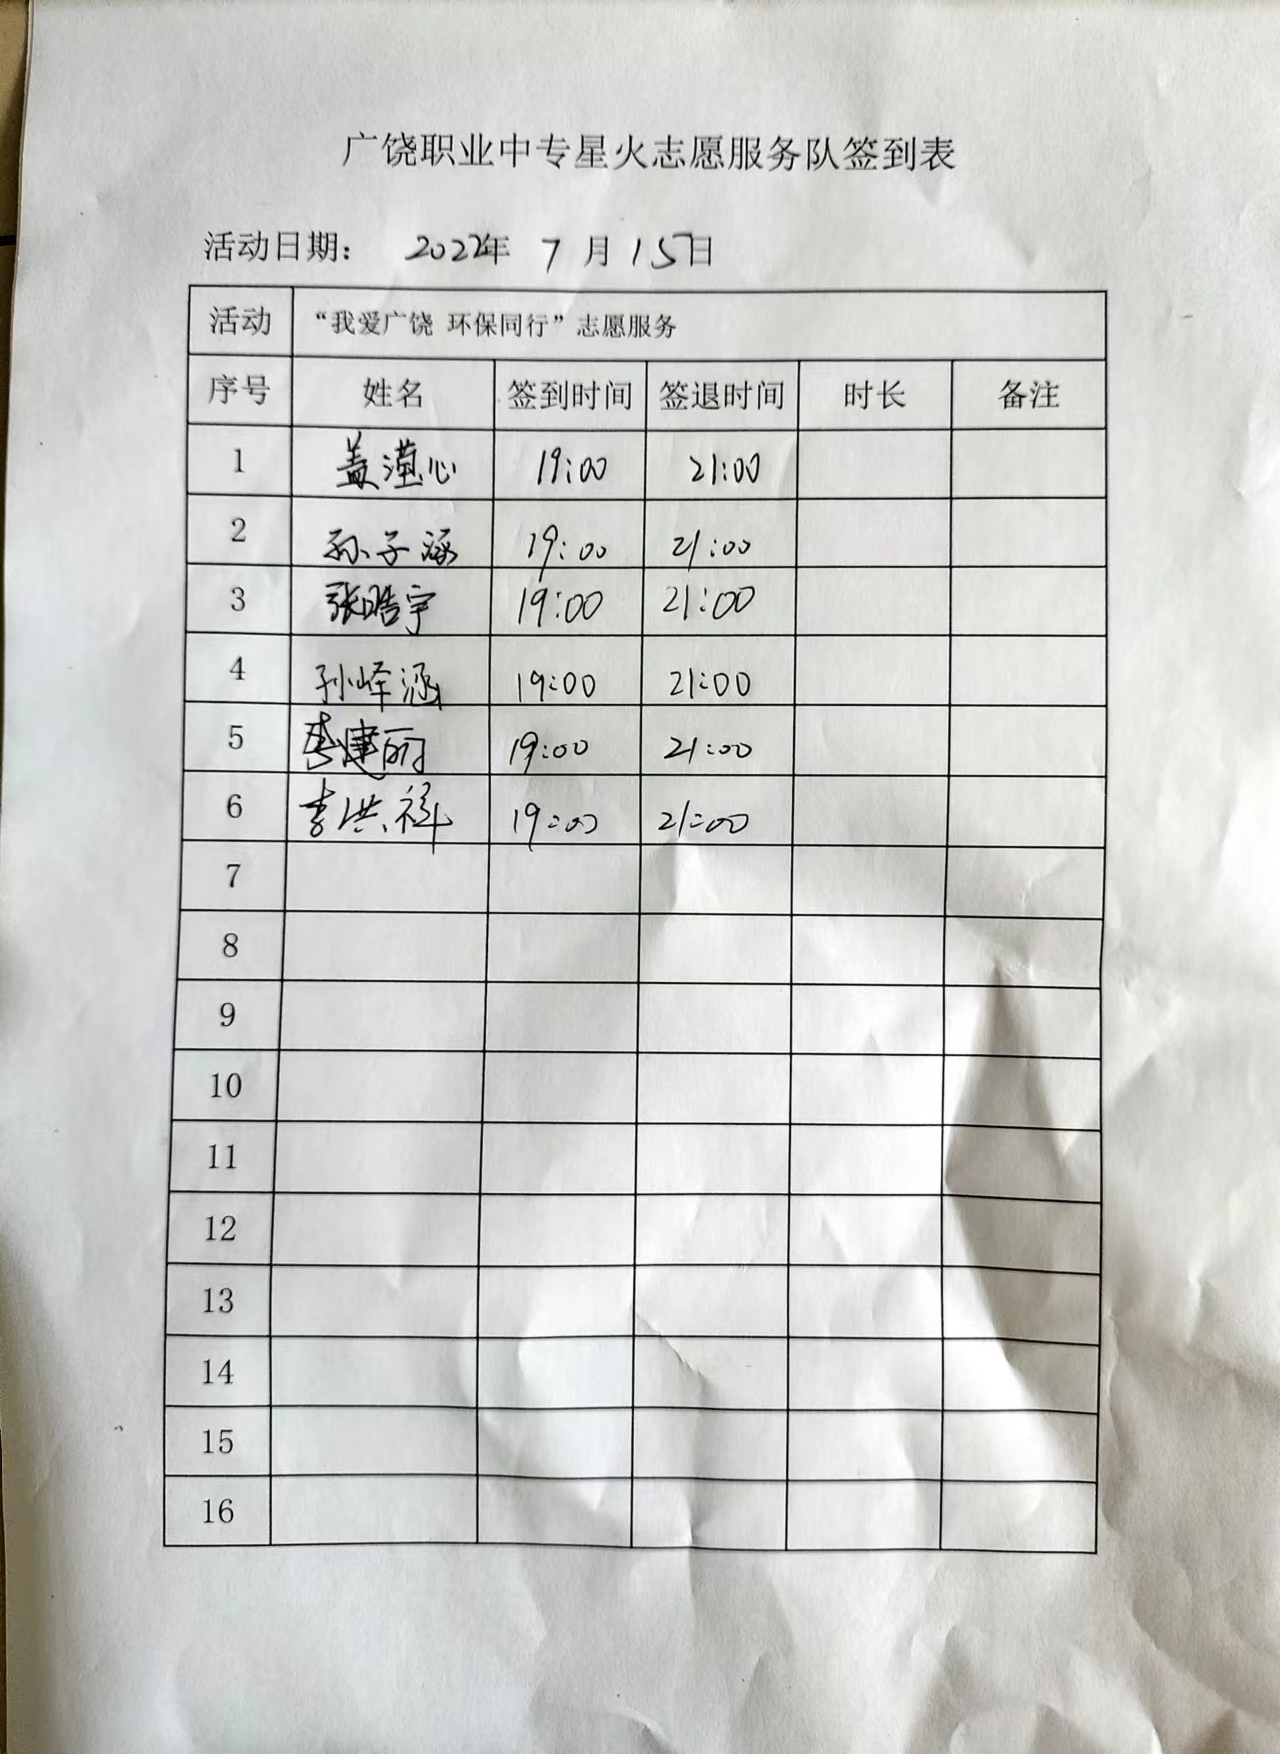 广饶职业中专星火志愿服务队签到表
活动日期： 2022年 7 月 15日
活动 “我爱广饶 环保同行”志愿服务
序号 姓名 签到时间 签退时间 时长 备注
1 盖滢心 19:00 21:00
2 孙子涵 19:00 21:00
3 张皓宇 19:00 21:00
4 孙峄涵 19:00 21:00
5 李建丽 19:00 21:00
6 李洪祥 19:00 21:00
7
8
9
10
11
12
13
14
15
16